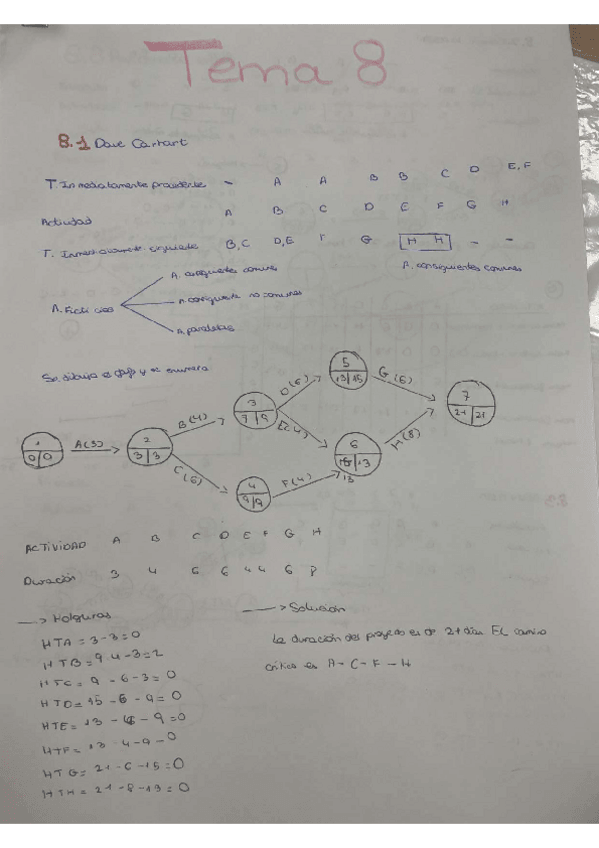 Tema 8
8.1 Dave Carhart
T. Inmediatamente precedente - A A B B C D E, F
Actividad A B C D E F G H
T. Inmediatamente siguiente B, C D, E F G H H - -
A. consiguientes comunes
A. Ficticias
A. consiguientes comunes
A. consiguiente no comunes
A. paralelas
Se dibuja el grafo y se enumera
1 0 0
A(3)
2 3 3
B(4)
C(6)
3 7 9
4 9 9
D(6)
E(4)
F(4)
5 13 15
6 13
13
G(6)
H(8)
7 21 21
ACTIVIDAD A B C D E F G H
Duración 3 4 6 6 4 4 6 8
→ Holguras
HTA = 3-3=0
HTB = 9-4-3=2
HTC = 9-6-3=0
HTD = 15-6-9=0
HTE = 13-4-9=0
HTF = 13-4-9=0
HTG = 21-6-15=0
HTH = 21-8-13=0
→ Solución
La duración del proyecto es de 21 días. El camino
crítico es A-C-F-H